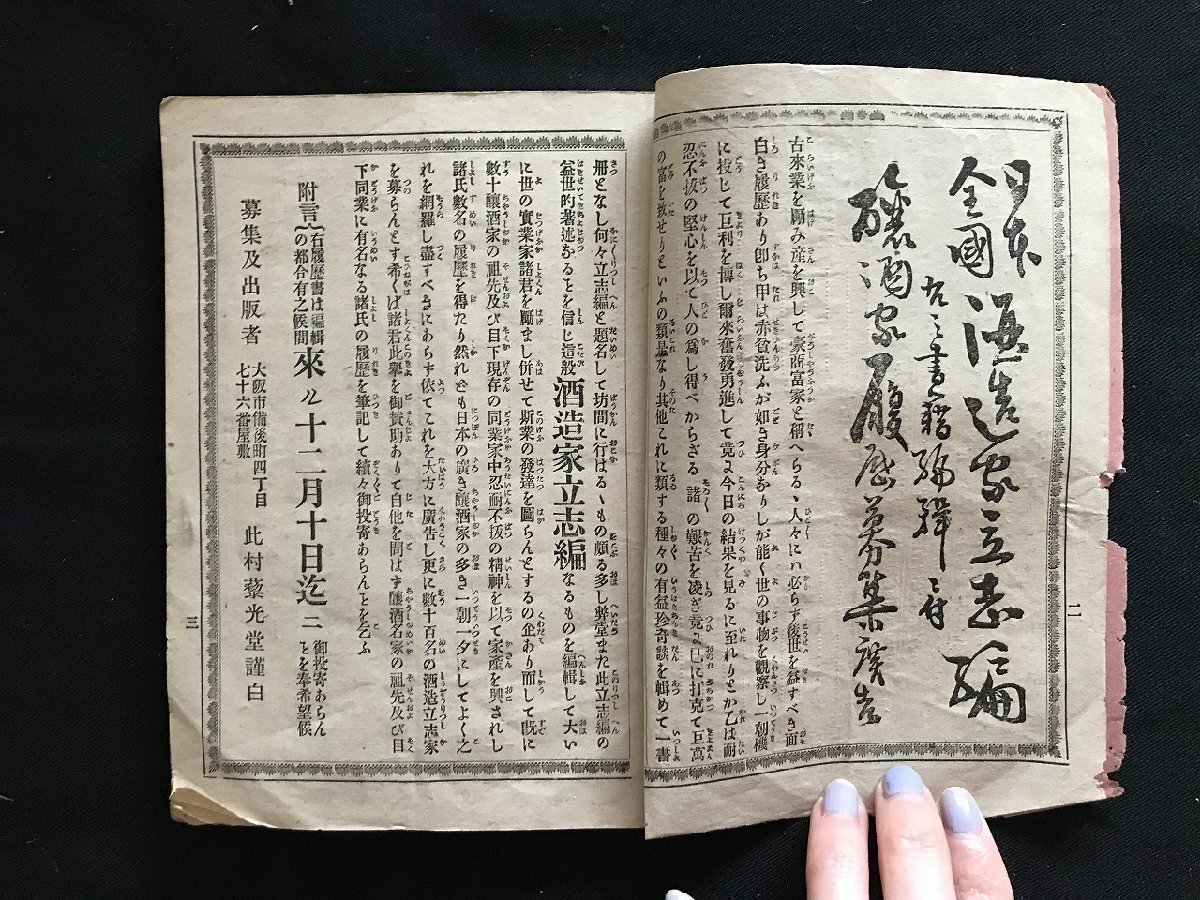 二
日本
全國 酒造家立志編
右之書籍編輯ニ付
釀酒家履歴募集廣告
古來業を勵み產を興して豪商富家と稱へらるゝ人々にハ必らず後世を益すべき面
白き履歴あり卽ち甲は赤貧洗ふが如き身分なりしが能く世の事物を觀察し一朝機
に投じて巨利を博し爾來奮發勇進して竟よ今日の結果を見るに至れりとか乙は耐
忍不拔の堅心を以て人の爲し得べからざる諸の艱苦を凌ぎ竟よ己に打克て巨萬
の富を致せりといふの類是なり其他これに類する種々の有益珍奇談を輯めて一書
冊となし何々立志編と題名して坊間に行はるゝもの頗る多し弊堂また此立志編の
益世的著述なることを信じ這般酒造家立志編なるものを編輯して大い
に世の實業家諸君を勵まし併せて斯業の發達を圖らんとするの企あり而して既に
數十釀酒家の祖先及び目下現存の同業家中忍耐不拔の精神を以て家產を興されし
諸氏數名の履歴を得たり然れども日本の廣き釀酒家の多き一朝一夕にしてよく之
れを網羅し盡すべきにあらず依てこれを大方に廣告し更に數十百名の酒造立志家
を募らんとす希くば諸君此擧を御賛助ありて自他を問はず釀酒名家の祖先及び目
下同業に有名なる諸氏の履歴を筆記して續々御投寄あらんことを乞ふ
附言 右履歴書は編輯の都合有之候間 來ル十二月十日迄ニ 御投寄あらんことを奉希望候
募集及出版者 大阪市備後町四丁目七十六番屋敷 此村藜光堂謹白
三